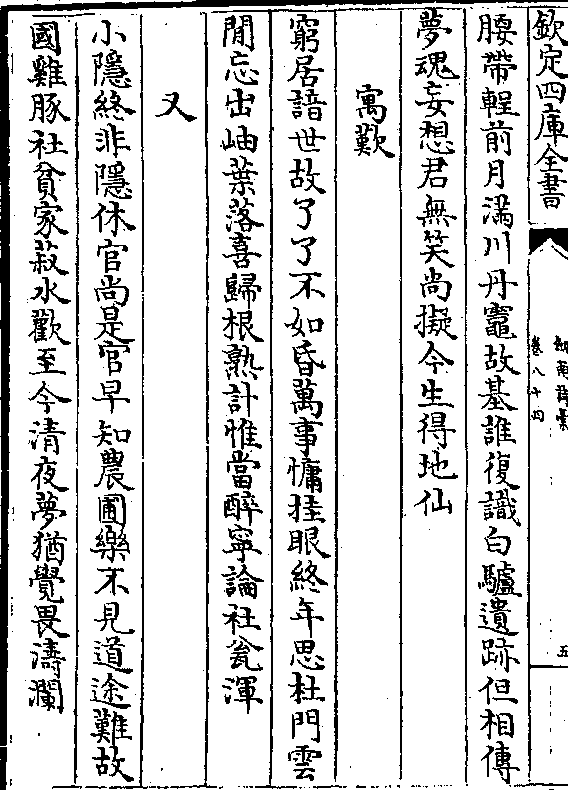 欽定四庫全書
劍南詩槀
卷八十四
五
腰帶輕前月滿川丹竈故基誰復識白驢遺跡但相傳
夢魂妄想君無笑尚擬今生得地仙
寓歎
窮居諳世故了了不如昏萬事慵挂眼終年思杜門雲
閒忘出岫葉落喜歸根熟計惟當醉寧論社瓮渾
又
小隱終非隱休官尚是官早知農圃樂不見道途難故
國雞豚社貧家菽水歡至今清夜夢猶覺畏濤瀾